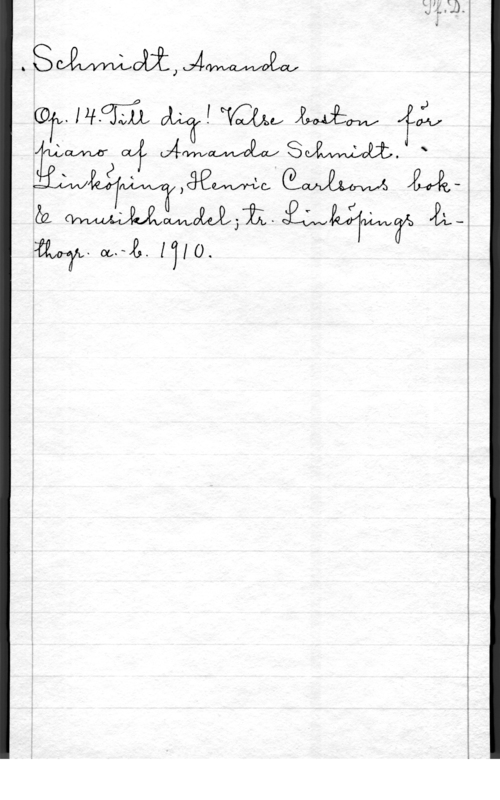 Pf. D.
Schmidt, Amanda
Op. 14. Till dig! Valse boston för
piano af Amanda Schmidt.
Linköping, Henric Carlsons bok-
& musikhandel; tr. Linköpings li-
thogr. a.-b. 1910.